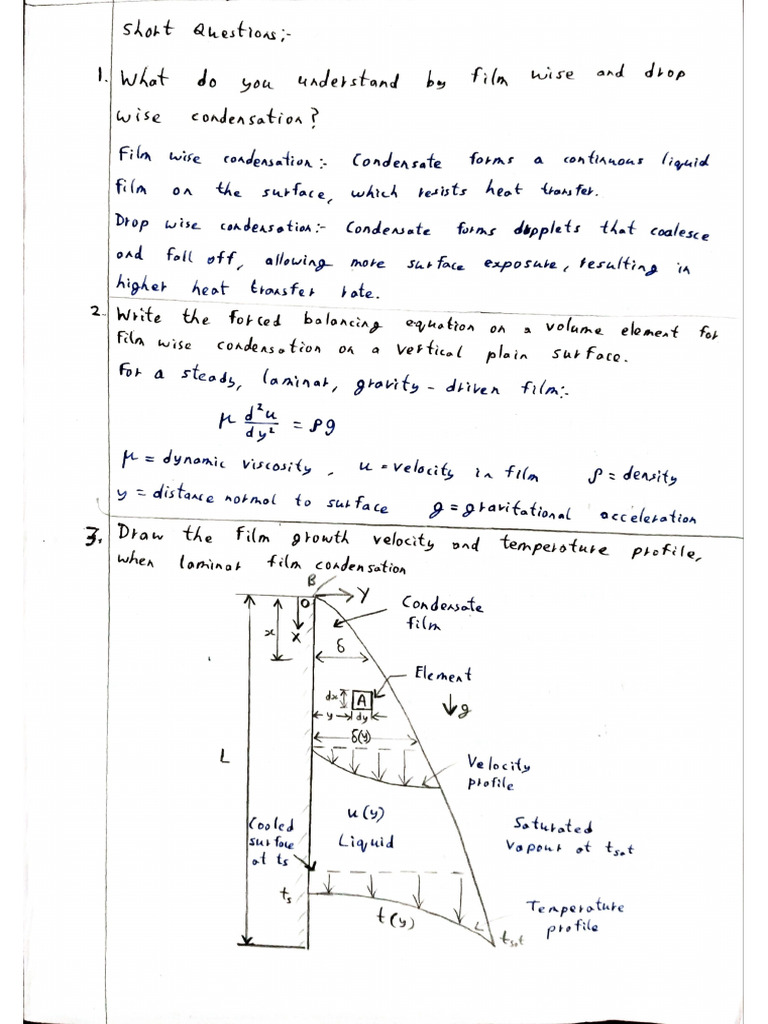 Short Questions:-
1. What do you understand by film wise and drop
wise condensation?
Film wise condensation:- Condensate forms a continuous liquid
film on the surface, which resists heat transfer.
Drop wise condensation:- Condensate forms dropplets that coalesce
and fall off, allowing more surface exposure, resulting in
higher heat transfer rate.
2. Write the forced balancing equation on a volume element for
film wise condensation on a vertical plain surface.
For a steady, laminar, gravity-driven film:-
μ d²u/dy² = ρg
μ = dynamic viscosity, u = velocity in film ρ = density
y = distance normal to surface g = gravitational acceleration
3. Draw the film growth velocity and temperature profile,
when laminar film condensation
B
O
Y
x
X
Condensate
film
δ
Element
dx
A
y
dy
g
δ(y)
L
Velocity
profile
u(y)
Liquid
Cooled
surface
at ts
Saturated
Vapour at tsat
ts
t(y)
tsat
Temperature
profile